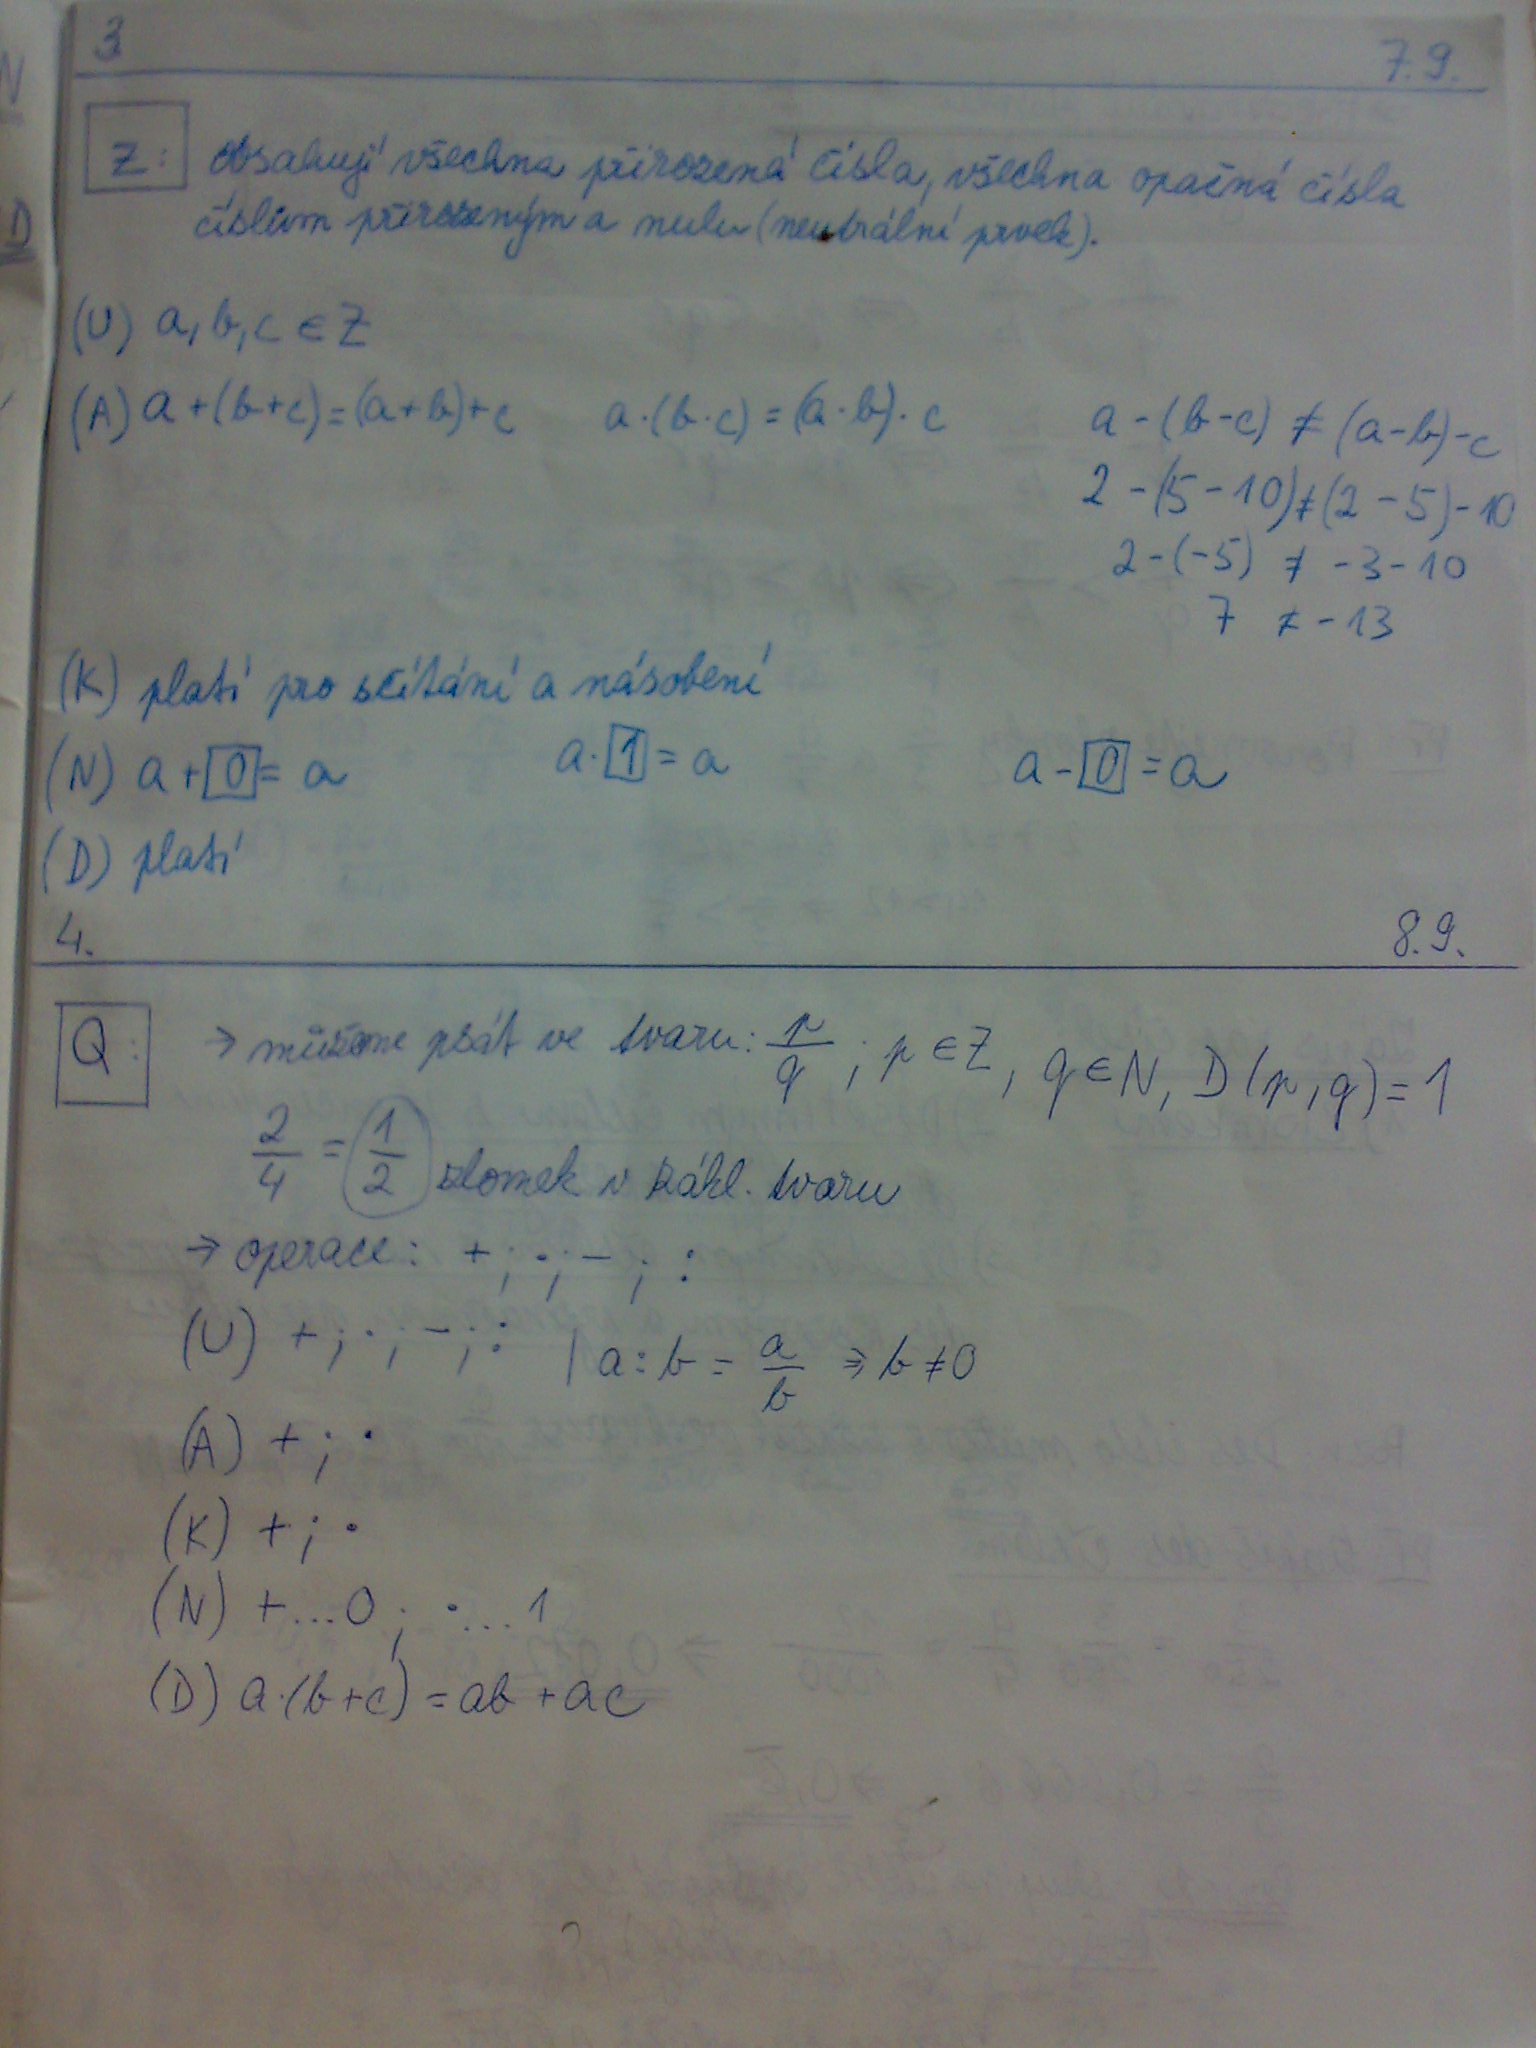 3 7.9.
Z: obsahují všechna přirozená čísla, všechna opačná čísla
číslům přirozeným a nulu (neutrální prvek).
(U) a, b, c ∈ Z
(A) a + (b + c) = (a + b) + c a · (b · c) = (a · b) · c a - (b - c) ≠ (a - b) - c
2 - (5 - 10) ≠ (2 - 5) - 10
2 - (-5) ≠ -3 - 10
7 ≠ -13
(K) platí pro sčítání a násobení
(N) a + 0 = a a · 1 = a a - 0 = a
(D) platí
4. 8.9.
Q: → můžeme psát ve tvaru: p/q ; p ∈ Z, q ∈ N, D(p, q) = 1
2/4 = 1/2 zlomek v zákl. tvaru
→ operace: + ; · ; - ; :
(U) + ; · ; - ; : | a : b = a/b ⇒ b ≠ 0
(A) + ; ·
(K) + ; ·
(N) + ... 0 ; · ... 1
(D) a · (b + c) = ab + ac